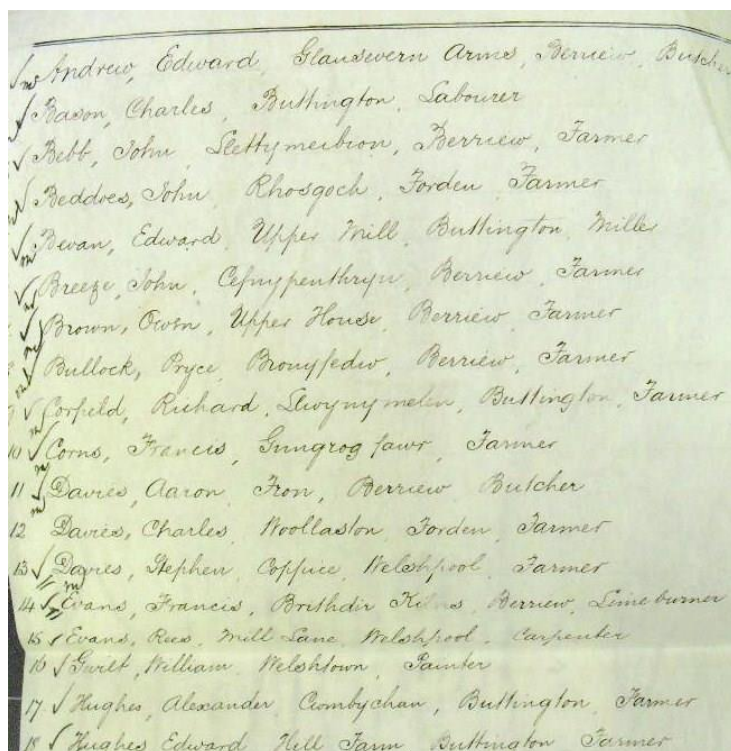 Andrew, Edward, Glansevern Arms, Berriew, Butcher
Bason, Charles, Buttington, Labourer
Bebb, John Llettymeibion, Berriew, Farmer
Beddoes, John, Rhosgoch, Forden Farmer
Bevan, Edward, Upper Mill, Buttington, Miller
Breeze, John, Cefnypenthryn, Berriew, Farmer
Brown, Owen, Upper House, Berriew, Farmer
Bullock, Pryce, Bronyfedw, Berriew, Farmer
9 Corfield, Richard, Llwynymelin, Buttington, Farmer
10 Corns, Francis, Gungrog fawr, Farmer
11 Davies, Aaron, Fron, Berriew Butcher
12 Davies, Charles, Woollaston Forden, Farmer
13 Davies, Stephen, Coppice, Welshpool, Farmer
14 Evans, Francis, Brithdir Kilns, Berriew, Limeburner
15 Evans, Rees, Mill Lane, Welshpool, Carpenter
16 Gwilt, William, Welshtown, Painter
17 Hughes, Alexander, Cwmbychan, Buttington, Farmer
18 Hughes Edward Hill Farm Buttington Farmer